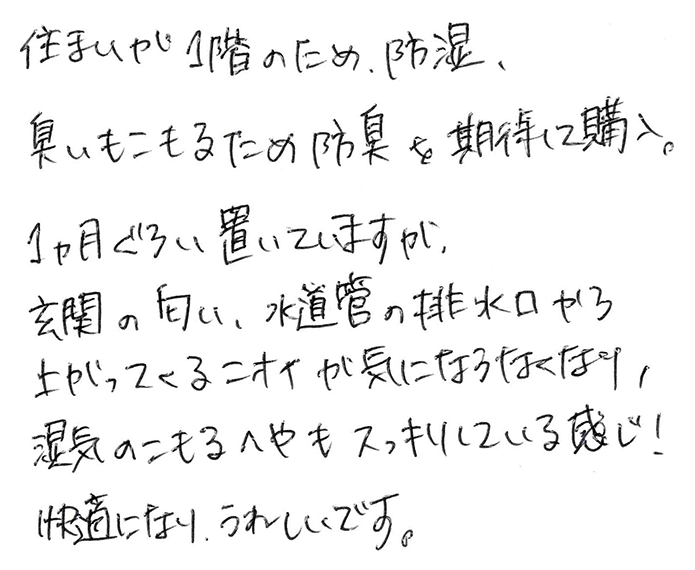 住まいが1階のため、防湿、
臭いもこもるため防臭を期待して購入。
1ヵ月ぐらい置いていますが、
玄関の匂い、水道管の排水口から
上がってくるニオイが気にならなくなり、
湿気のこもるへやもスッキリしている感じ!
快適になり、うれしいです。